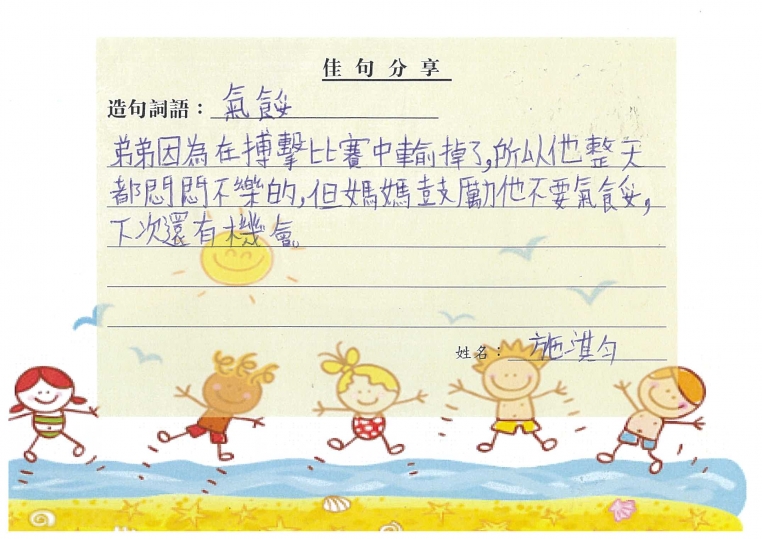 佳句分享
造句詞語：氣餒
弟弟因為在搏擊比賽中輸掉了,所以他整天
都悶悶不樂的,但媽媽鼓勵他不要氣餒,
下次還有機會。
姓名：施淇勻